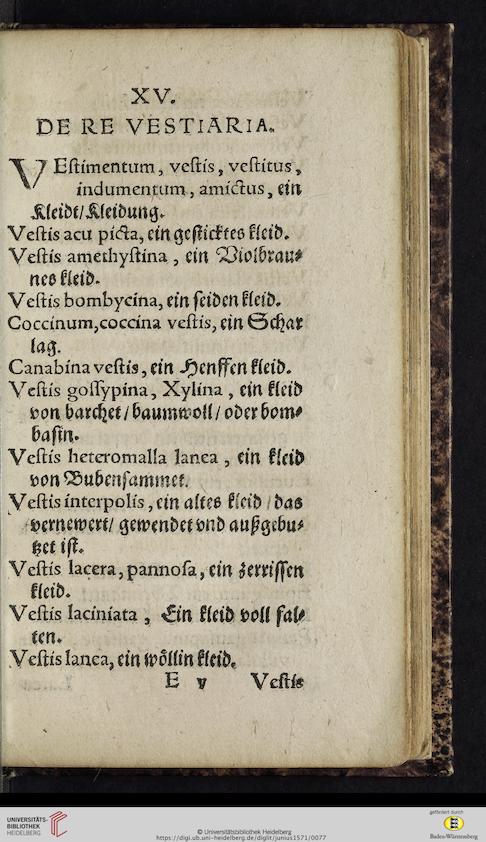 XV.
DE RE VESTIARIA.
VEſtimentum, veſtis, veſtitus,
indumentum, amictus, ein
Kleidt/Kleidung.
Veſtis acu picta, ein geſticktes kleid.
Veſtis amethyſtina, ein Violbrau⸗
nes kleid.
Veſtis bombycina, ein ſeiden kleid.
Coccinum, coccina veſtis, ein Schar
lag.
Canabina veſtis, ein Henffen kleid.
Veſtis goſſypina, Xylina, ein kleid
von barchet/baumwoll/oder bom⸗
baſin.
Veſtis heteromalla lanea, ein kleid
von Bubenſammet.
Veſtis interpolis, ein altes kleid/das
vernewert/gewendet vnd außgebu⸗
tzet iſt.
Veſtis lacera, pannoſa, ein zerriſſen
kleid.
Veſtis laciniata, Ein kleid voll fal⸗
ten.
Veſtis lanea, ein wöllin kleid.
E v Veſtis
UNIVERSITÄTS-
BIBLIOTHEK
HEIDELBERG
© Universitätsbibliothek Heidelberg
https://digi.ub.uni-heidelberg.de/diglit/junius1571/0077
gefördert durch
Baden-Württemberg